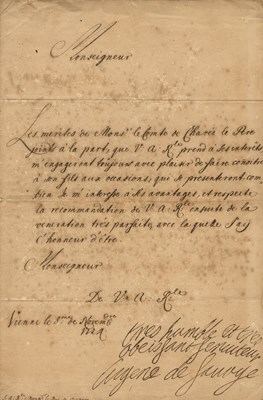 Monseigneur
Les merites de Mons.r le Comte de Charée le Pere
joints à la part, que V A R.le prend à ses interéts,
m'engageront toujours avec plaisir de faire connoitre
à son fils aux occasions, qui se presenteront com-
bien Je m'interesse à ses avantages, et respecte
la recommandation de V. A. R.le ensuite de la
veneration tres parfaite, avec la quelle Je suis
l'honneur d'étre.
Monseigneur
De V.re A R.le
Vienne le de Novemb.
1724
tres humble et tres
obeissant serviteur
Eugene de Savoye